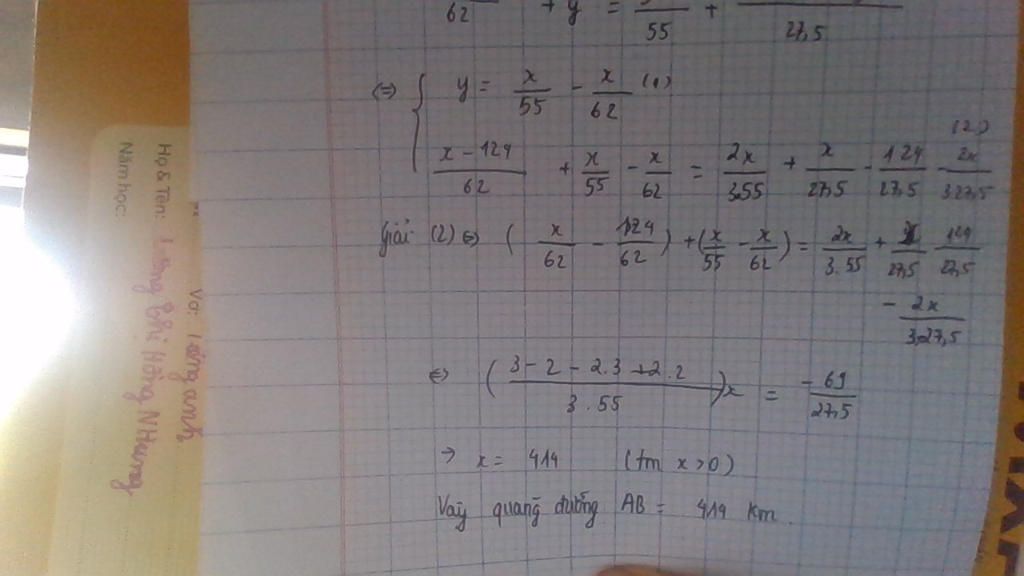 62 + y = 55 + 27,5
<=> { y = x/55 - x/62 (1)
(x - 124)/62 + x/55 - x/62 = 2x/3.55 + x/27,5 - 124/27,5 - 2x/3.27,5 (2)
Giải (2) <=> (x/62 - 124/62) + (x/55 - x/62) = 2x/3.55 + x/27,5 - 124/27,5
- 2x/3.27,5
<=> ((3 - 2 - 2.3 + 2.2)/3.55)x = -69/27,5
→ x = 414 (tm x>0)
Vậy quãng đường AB = 414 km.
Vở: anh
Họ & Tên: Thị Hồng Nhung
Năm học: